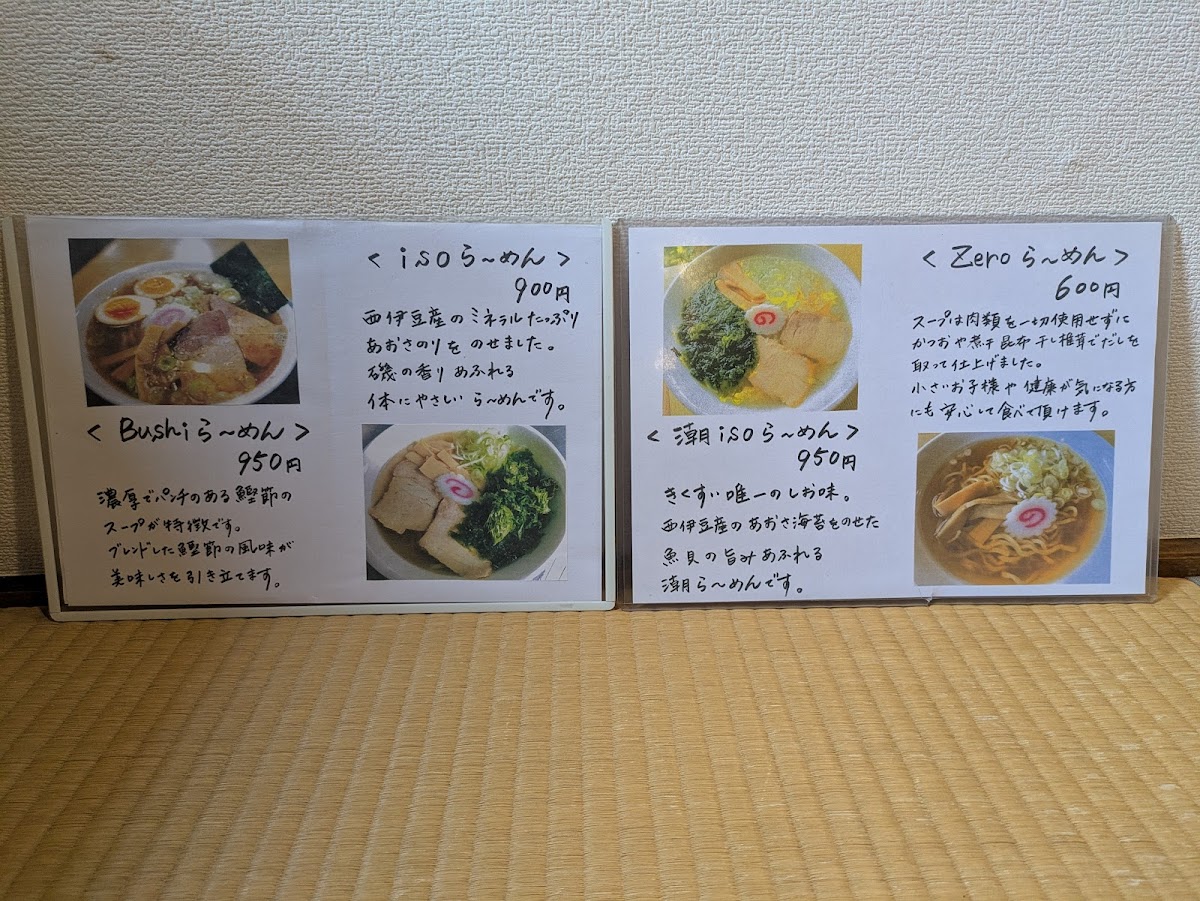 < Bushiら～めん >
950円
濃厚でパンチのある鰹節の
スープが特徴です。
ブレンドした鰹節の風味が
美味しさを引き立てます。
< isoら～めん >
900円
西伊豆産のミネラルたっぷり
あおさのりをのせました。
磯の香りあふれる
体にやさしいら～めんです。
< 潮isoら～めん >
950円
きくすい唯一のしお味。
西伊豆産のあおさ海苔をのせた
魚貝の旨みあふれる
潮ら～めんです。
< Zeroら～めん >
600円
スープは肉類を一切使用せずに
かつおや煮干昆布干し椎茸でだしを
取って仕上げました。
小さいお子様や健康が気になる方
にも安心して食べて頂けます。